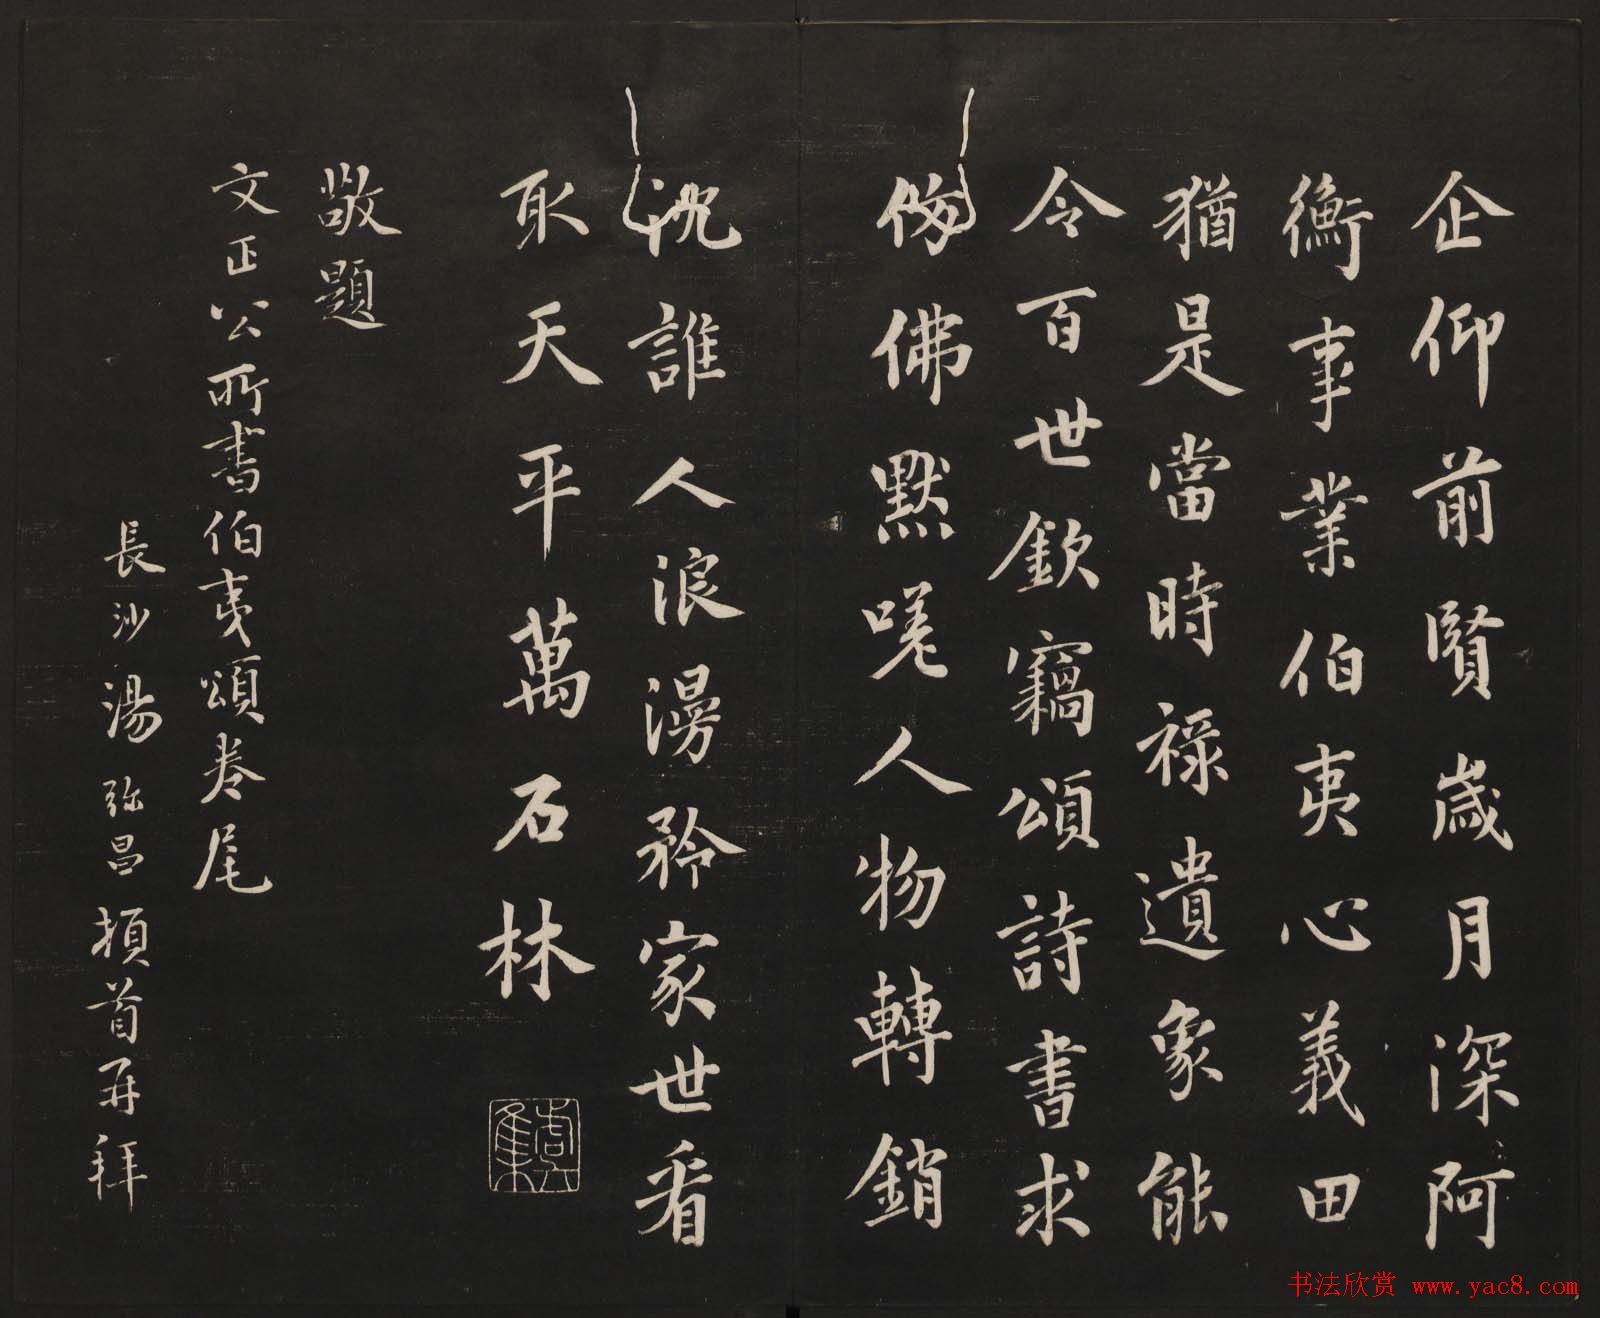 企仰前賢歲月深阿
衡事業伯夷心義田
猶是當時祿遺象能
令百世欽竊頌詩書求
仿佛默嗟人物轉銷
沈誰人浪漫矜家世看
取天平萬石林
敬題
文正公所書伯夷頌卷尾
長沙湯弥昌頓首再拜
书法欣赏 www.yac8.com